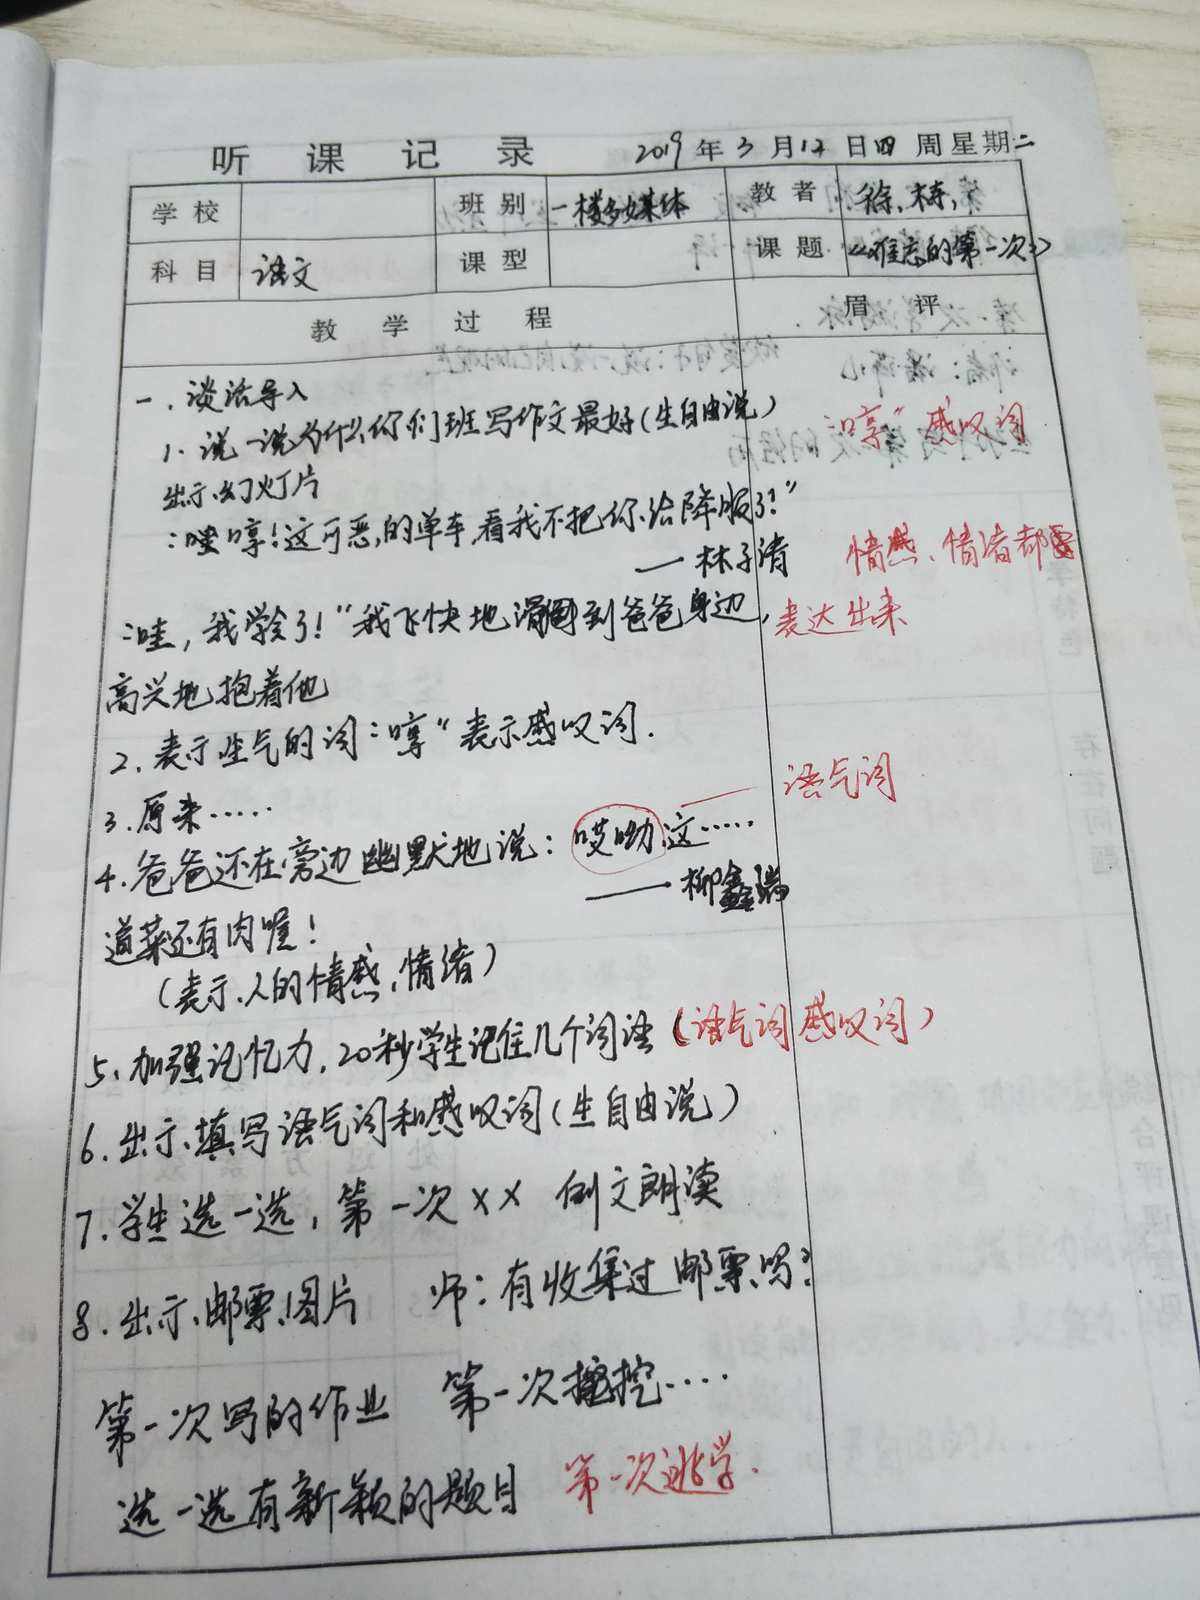 听课记录 2019年3月12日四周星期二
学校 班别 一楼多媒体 教者 徐栋
科目 语文 课型 课题 《难忘的第一次》
教学过程 眉评
一、谈话导入
1、说一说为什么你们班写作文最好(生自由说) "哼"感叹词
出示幻灯片
"哼!这可恶的单车,看我不把你给降服了!"
——林子清 情感、情绪都要
"哇,我学会了!"我飞快地滑到爸爸身边, 表达出来
高兴地抱着他
2、表示生气的词"哼"表示感叹词.
3.原来…… 语气词
4.爸爸还在旁边幽默地说:哎呦,这……
——柳鑫瑞
道菜还有肉喔!
(表示人的情感、情绪)
5、加强记忆力,20秒学生记住几个词语(语气词 感叹词)
6.出示填写语气词和感叹词(生自由说)
7.学生选一选,第一次×× 例文朗读
8.出示邮票图片 师:有收集过邮票吗?
第一次写的作业 第一次挖……
选一选有新颖的题目 第一次逃学.